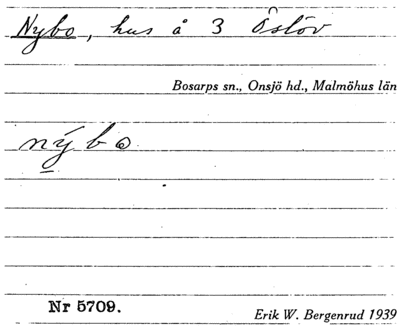 Nybo, hus å 3 Östöv
Bosarps sn., Onsjö hd., Malmöhus län
nýbo
Nr 5709.
Erik W. Bergenrud 1939